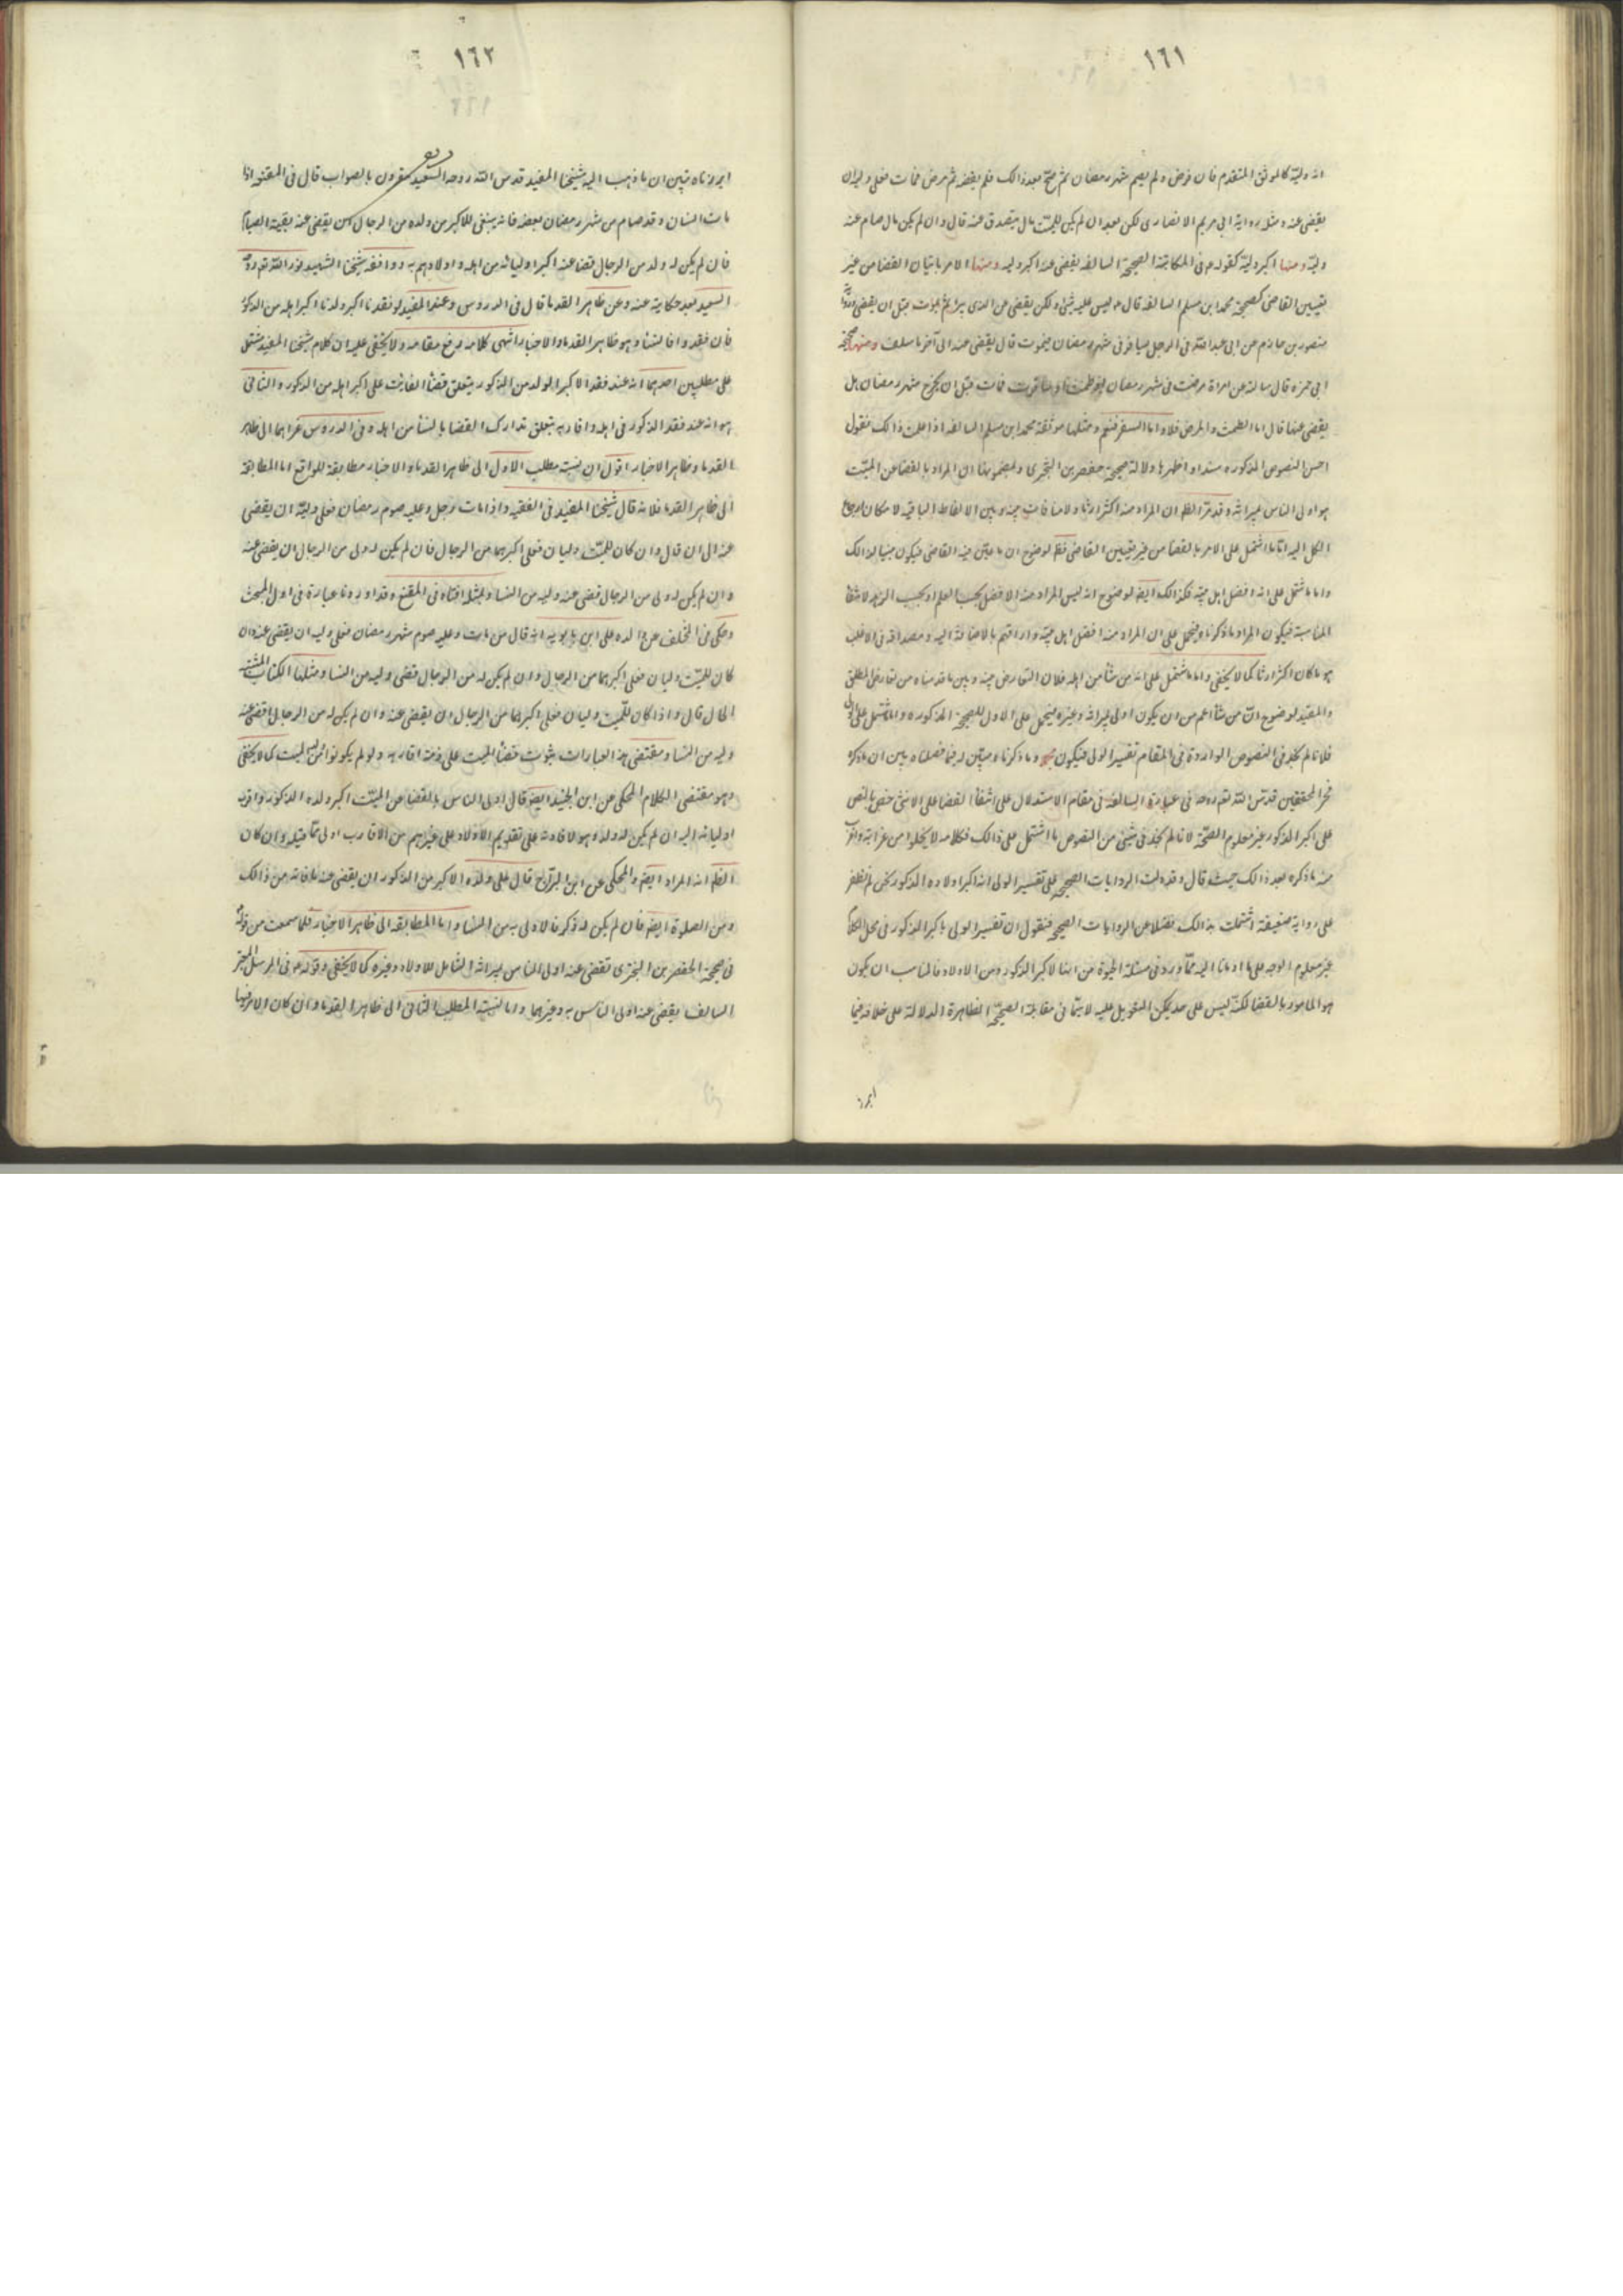 ١٦١
انه وليه كالموثق المتقدم فان مرض ولم يصم شهر رمضان ثم صح بعد ذالك فلم يقضه ثم مرض فمات فعلى وليه ان
يقضى عنه ومثله رواية ابى مريم الانصارى لكن بعد ان لم يكن للميت مال يتصدق عنه قال وان لم يكن مال صام عنه
وليه ومنها اكبر وليه كقوله ع فى المكاتبة الصحيحة السالفه يقضى عنه اكبر وليه ومنها الامر باتيان القضا من غير
تعيين القاضى كصحيحة محمد ابن مسلم السالفه قال ع ليس عليه شئ ولكن يقضى عن الذى يبرا ثم يموت قبل ان يقضى
منصور بن حازم عن ابى عبد الله فى الرجل يسافر فى شهر رمضان فيموت قال يقضى عنه الى آخر ما سلف ومنها صحيحة
ابى حمزه قال سالته عن امراة مرضت فى شهر رمضان او طمثت او سافرت فماتت قبل ان يخرج شهر رمضان هل
يقضى عنها قال اما الطمث والمرض فلا واما السفر فنعم ومثلها موثقة محمد ابن مسلم السالفه اذا علمت ذالك فنقول
احسن النصوص المذكوره سندا واظهرها دلالة صحيحة حفص بن البخترى ومضمونها ان المراد بالقضا عن الميت
هو اولى الناس بميراثه وقد مر الظه ان المراد منه اكثر ارثا ولا منافات بينه وبين الالفاظ الباقيه لامكان ارجاع
الكل اليه اما ما اشتمل على الامر بالقضا من غير تعيين القاضى فظ لوضوح ان ما عين فيه القاضى فيكون مبنيا لذالك
واما ما شتمل على انه افضل اهل بيته فكذالك ايضه لوضوح انه ليس المراد منه الافضل بحسب العلم او بحسب الزهد لانتفا
المناسبة فيكون المراد ما ذكرناه فيحمل على ان المراد منه افضل اهل بيته وارأفهم بالاضافة اليه ومصداقه فى الاغلب
هو ما كان اكثر ارثا كما لا يخفى واما ما شتمل على انه من شأ من اهله فلان التعارض بينه وبين ما قدمناه من تعارض المطلق
والمقيد لوضوح ان من شأ اعم من ان يكون اولى بميراثه وغيره فيحمل على الاول للصحيحة المذكوره والمشتمل على
فلانا لم نجد فى النصوص الواردة فى المقام تفسير الولى فيكون وما ذكرنا ومتبين له فيما فصلناه يبين ان ما ذكره
فخر المحققين قدس الله تعه روحه فى عبارته السالفه فى مقام الاستدلال على انتفأ القضا على الانثى خص بالنص
على اكبر الذكور غير معلوم الصحة لانا لم نجد فى شيئ من النصوص ما اشتمل على ذالك فكلامه لا يخلوا من غرابة
منه ما ذكره بعد ذالك حيث قال وقد دلت الروايات الصحيحه على تفسير الولى انه اكبر اولاده الذكور لكن لم نظفر
على رواية ضعيفة اشتملت بذالك فضلا عن الروايات الصحيحه فنقول ان تفسير الولى باكبر الذكور فى محل الكلام
غير معلوم الوجه على ما اومانا اليه مما ورد فى مسئلة الحبوة من انها لاكبر الذكور من الاولاد فالمناسب ان يكون
هو المامور بالقضا لكنه ليس على حد يمكن التعويل عليه لا سيما فى مقابلة الصحيحه الظاهرة الدلالة على خلافه فيما
١٦٢
ابرزناه تبين ان ما ذهب اليه شيخنا المفيد قدس الله روحه السعيد مقرون بالصواب قال فى المقنعه اذا
مات انسان وقد صام من شهر رمضان بعضه فانه ينبغى للاكبر من ولده من الرجال ان يقضى عنه بقية الصيام
فان لم يكن له ولد من الرجال قضا عنه اكبر اوليائه من اهله واولاهم به ووافقه شيخنا الشهيد نور الله تعه روحه
السعيد بعد حكاية عنه وعن ظاهر القدما قال فى الدروس وعند المفيد لو فقدنا اكبر ولدنا اكبر اهله من الذكور
فان فقدوا فالنسأ وهو ظاهر القدما والاخبار انتهى كلامه رفع مقامه ولا يخفى عليه ان كلام شيخنا المفيد مشتمل
على مطلبين احدهما انه عند فقد الاكبر الولد من الذكور يتعلق قضأ الفائت على اكبر اهله من الذكور والثانى
هو انه عند فقد الذكور فى اهله واقاربه يتعلق تدارك القضا بالنسأ من اهله وفى الدروس عزاهما الى ظاهر
القدما وظاهر الاخبار اقول ان نسبت مطلب الاول الى ظاهر القدما والاخبار مطابقة للواقع اما المطابقة
الى ظاهر القدما فلانه قال شيخنا المفيد فى الفقيه واذا مات رجل وعليه صوم رمضان فعلى وليه ان يقضى
عنه الى ان قال وان كان للميت وليان فعلى اكبرهما من الرجال فان لم يكن له ولى من الرجال ان يقضى عنه
وان لم يكن له ولى من الرجال قضى عنه وليه من النسا ومثله افتاه فى المقنع وقد اوردنا عبارة فى اول المبحث
وحكى فى المختلف عن والده على ابن بابويه انه قال من مات وعليه صوم شهر رمضان فعلى وليه ان يقضى عنه وان
كان للميت وليان فعلى اكبرهما من الرجال وان لم يكن له من الرجال قضى وليه من النسا ومثلها الكتاب المشتبه
الحال قال واذا كان للميت وليان فعلى اكبرهما من الرجال ان يقضى عنه وان لم يكن له من الرجال قضى عنه
وليه من النسا ومقتضى هذه العبارات ثبوت قضأ الميت على ذمة اقاربه ولو لم يكونوا من الميت كما لا يخفى
وهو مقتضى الكلام المحكى عن ابن الجنيد ايضه قال اولى الناس بالقضا عن الميت اكبر ولده الذكور واقرب
اوليائه اليه ان لم يكن له ولد وهو لافادته على تقديم الاولاد على غيرهم من الاقارب اولى مما قبله وان كان
الظه انه المراد ايضه والمحكى عن ابن البراج قال على ولده الاكبر من الذكور ان يقضى عنه ما فاته من ذالك
ومن الصلوة ايضه فان لم يكن له ذكر فالاولى به من النسا واما المطابقه الى ظاهر الاخبار فلما سمعت من قوله
فى صحيحة الحفص بن البخترى تقضى عنه اولى الناس بميراثه الشامل للاولاد وغيره كما لا يخفى وقوله ع فى المرسل المعتبر
السالف يقضى عنه اولى الناس به وغيرهما واما نسبة المطلب الثانى الى ظاهر القدما وان كان الامر فيها